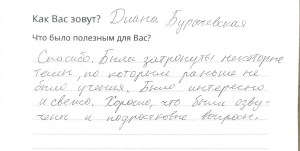 Как Вас зовут? Диана Бурачевская
Что было полезным для Вас?
Спасибо. Были затронуты некоторые
темы, по которым раньше не
было учения. Было интересно
и свежо. Хорошо, что были озву-
чены и подростковые вопросы.